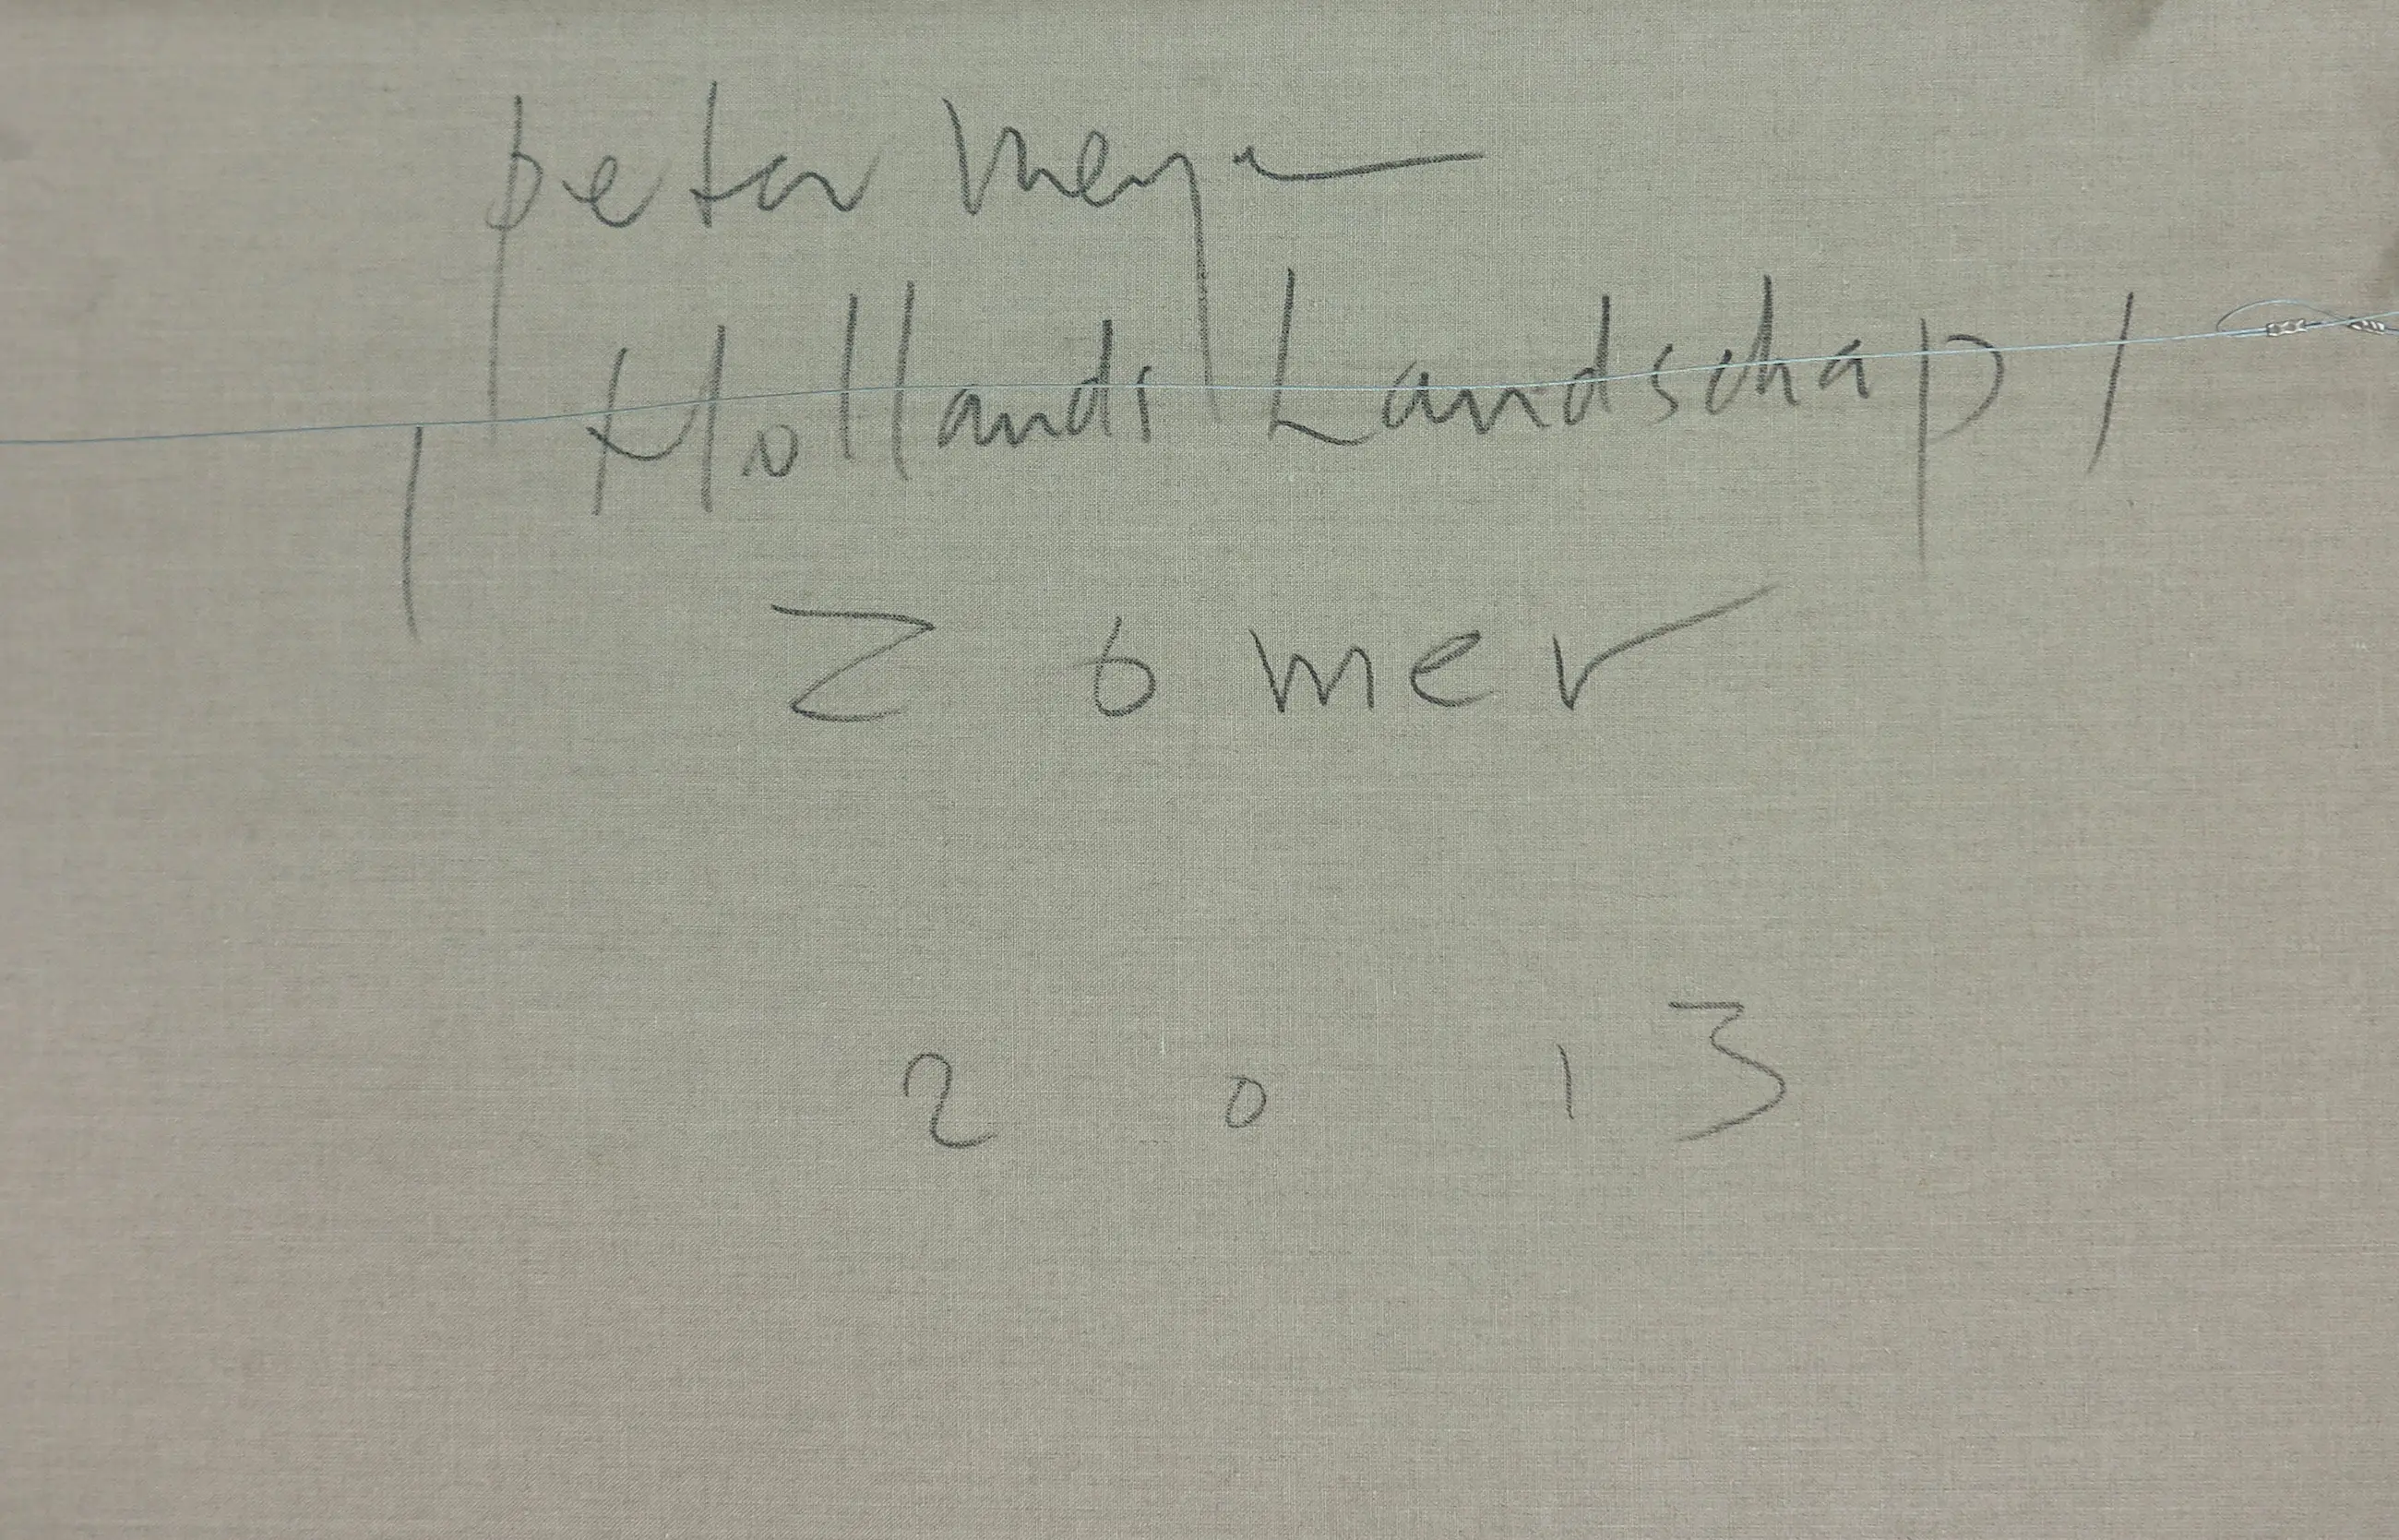 peter meyer
, Hollands Landschap '
Zomer
2013